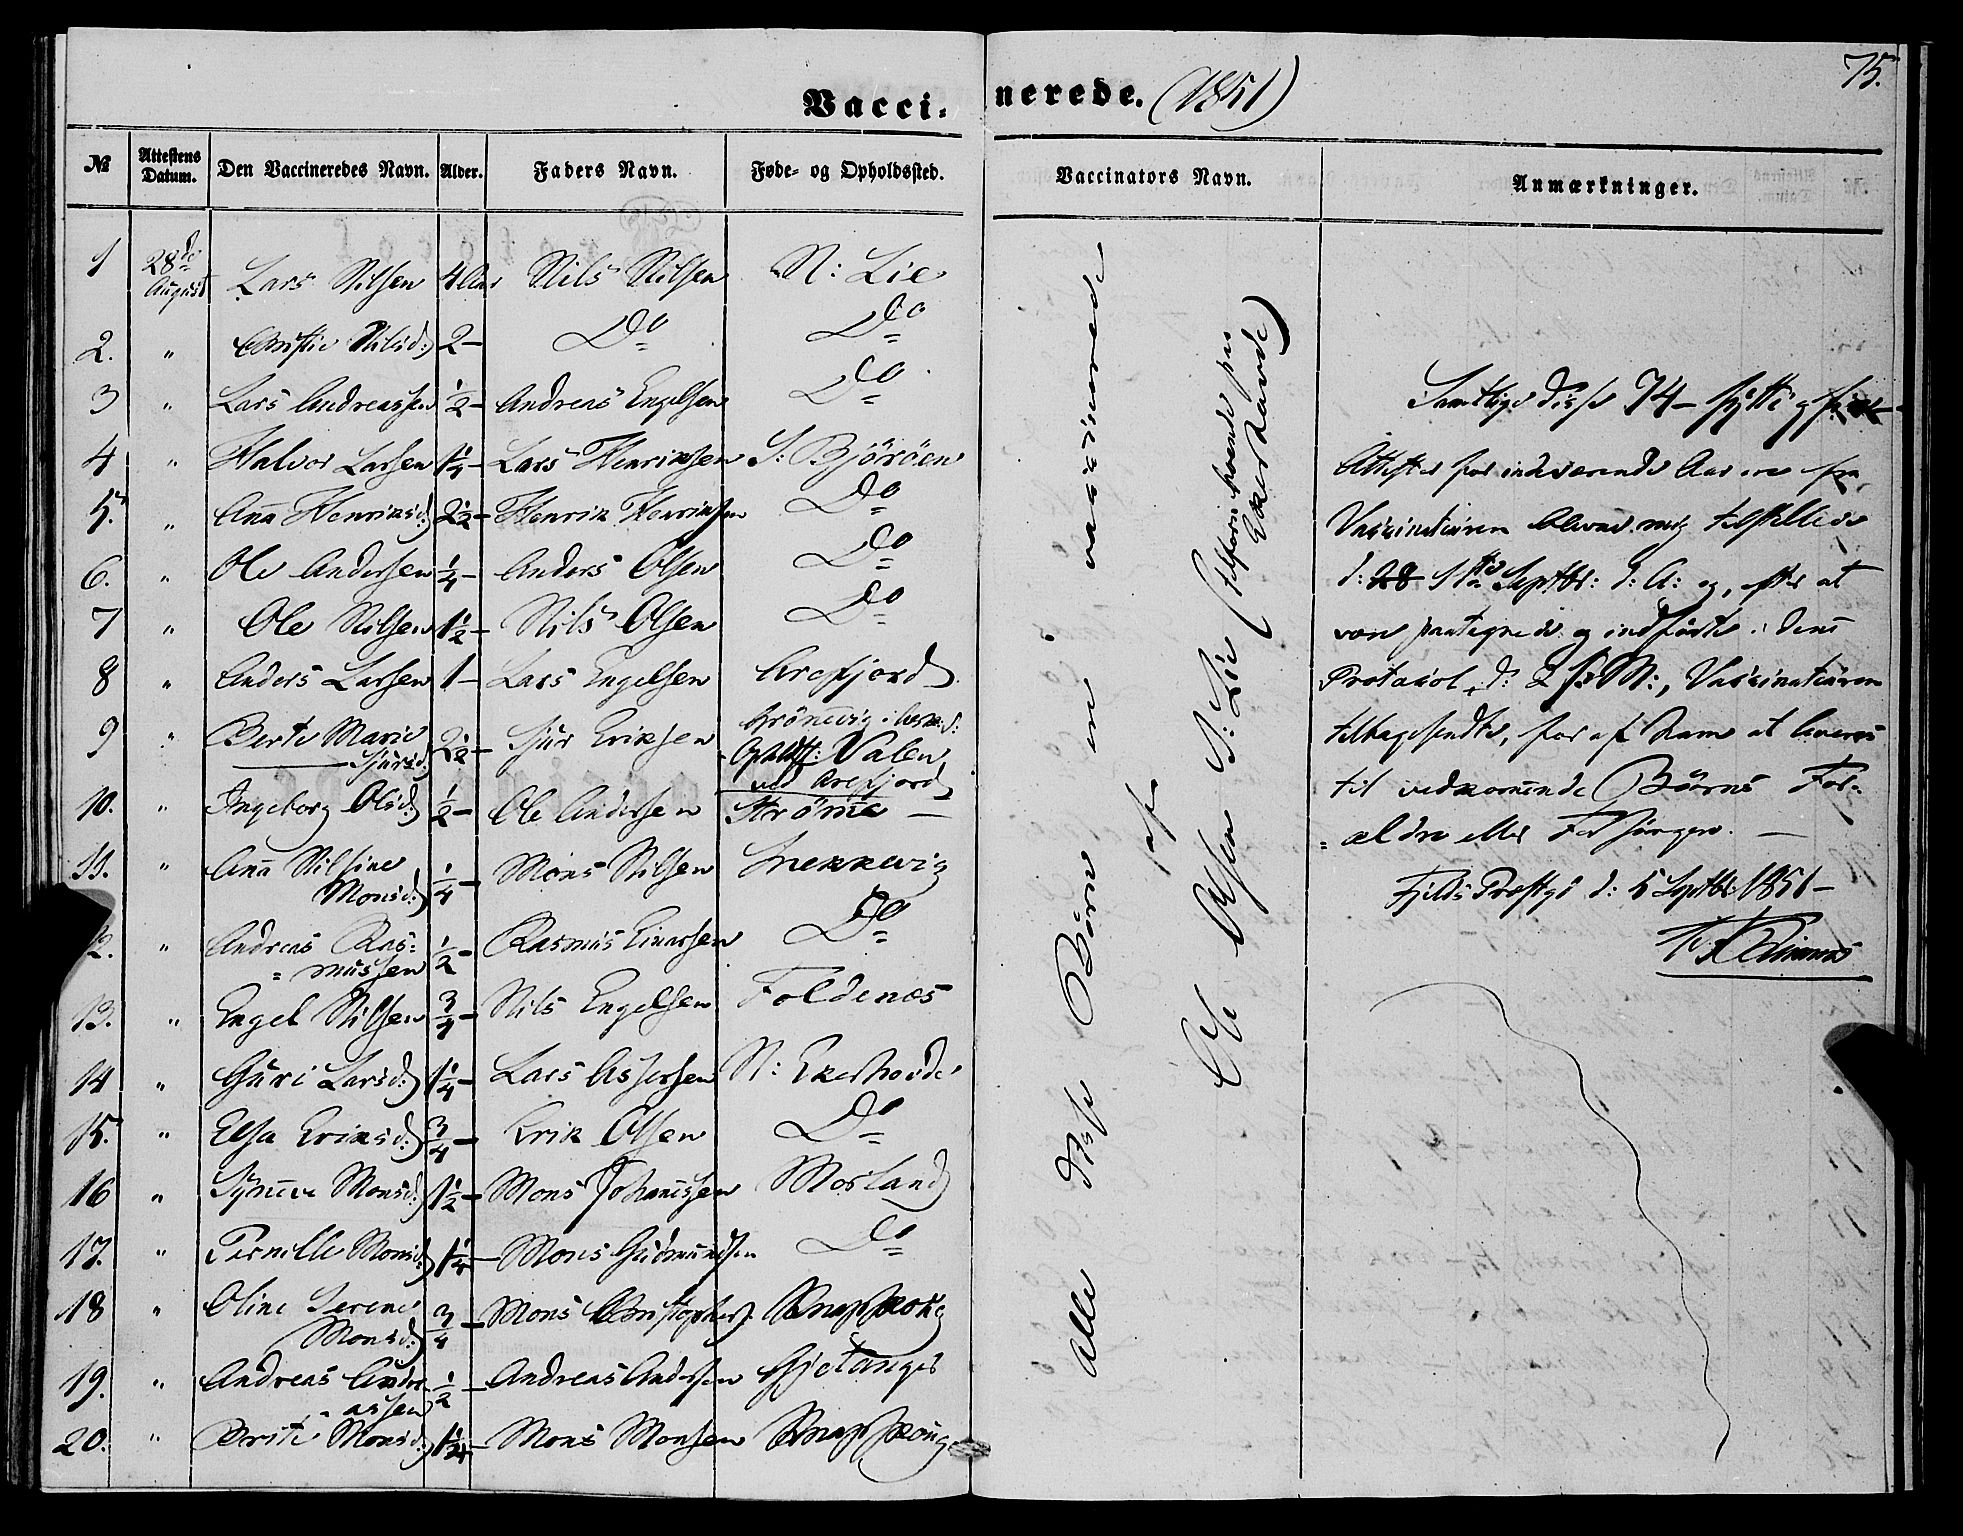 75.
Vaccinerede. (1851)
№ | Attestens Datum. | Den Vaccineredes Navn. | Alder. | Faders Navn. | Føde- og Opholdssted. | Vaccinators Navn. | Anmærkninger.
1 | 28de August | Lars Nilsen | 4 Aar | Nils Nilsen | N: Lie
2. | " | Christie Nilsd: | 2 - | Do | Do
3 | " | Lars Andreassen | 1/2 - | Andreas Engelsen | Do
4 | " | Halvor Larsen | 1 1/4 - | Lars Henriksen | S: Björöen
5. | " | Anna Henriksd: | 2 1/2 - | Henrik Henriksen | Do
6. | " | Ole Andersen | 1/4 - | Anders Olsen | Do
7 | " | Ole Nilsen | 1 1/2 - | Nils Olsen | Do
8 | " | Anders Larsen | 1 - | Lars Engelsen | Arefjord
9 | " | Berte Marie Sjursd: | 2 1/2 - | Sjur Eriksen | Opholdst: Valen ved Arefjord
10. | " | Ingeborg Olsd: | 1/2 - | Ole Andersen | Strömme -
11. | " | Anna Nilsine Monsd: | 1/4 - | Mons Nilsen | Snekkevig
12. | " | Andreas Rasmussen | 1/2 - | Rasmus Einarsen | Do
13. | " | Engel Nilsen | 3/4 - | Nils Engelsen | Foldenæs
14 | " | Guri Larsd: | 1 1/4 - | Lars Assersen | N: Ekerhovde
15. | " | Elsa Eriksd: | 3/4 - | Erik Olsen | Do
16 | " | Synneve Monsd: | 1 1/2 - | Mons Johannessen | Morland
17. | " | Pernille Monsd: | 1 1/4 - | Mons Gudmundsen | Do
18 | " | Oline Serene Monsd: | 3/4 - | Mons Christophers: | Knapskog
19. | " | Andreas Andreassen | 1/2 - | Andreas Andersen | Gjetanger
20. | " | Berte Monsd: | 1 1/4 - | Mons Monsen | Knapskoug
Alle disse Börn ere vaccinerede
af
Ole Olsen N: Lie (tilforn boende paa
Ekerhovde)
Samtlige disse 74 - sytti og fire -
Attester for indeværende Aar ere fra
Vaccinateuren blevne mig tilstillede
d: 28 1ste Septbr: d: A: og, efter at
være paategnede og indførte i denne
Protokol, d: 2 s: M:, Vaccinateuren
tilbagesendte, for af ham at leveres
til vedkommende Börns For-
ældre eller Forsörgere. -
Fjelds Præstgd d: 5 Septbr: 1851 -